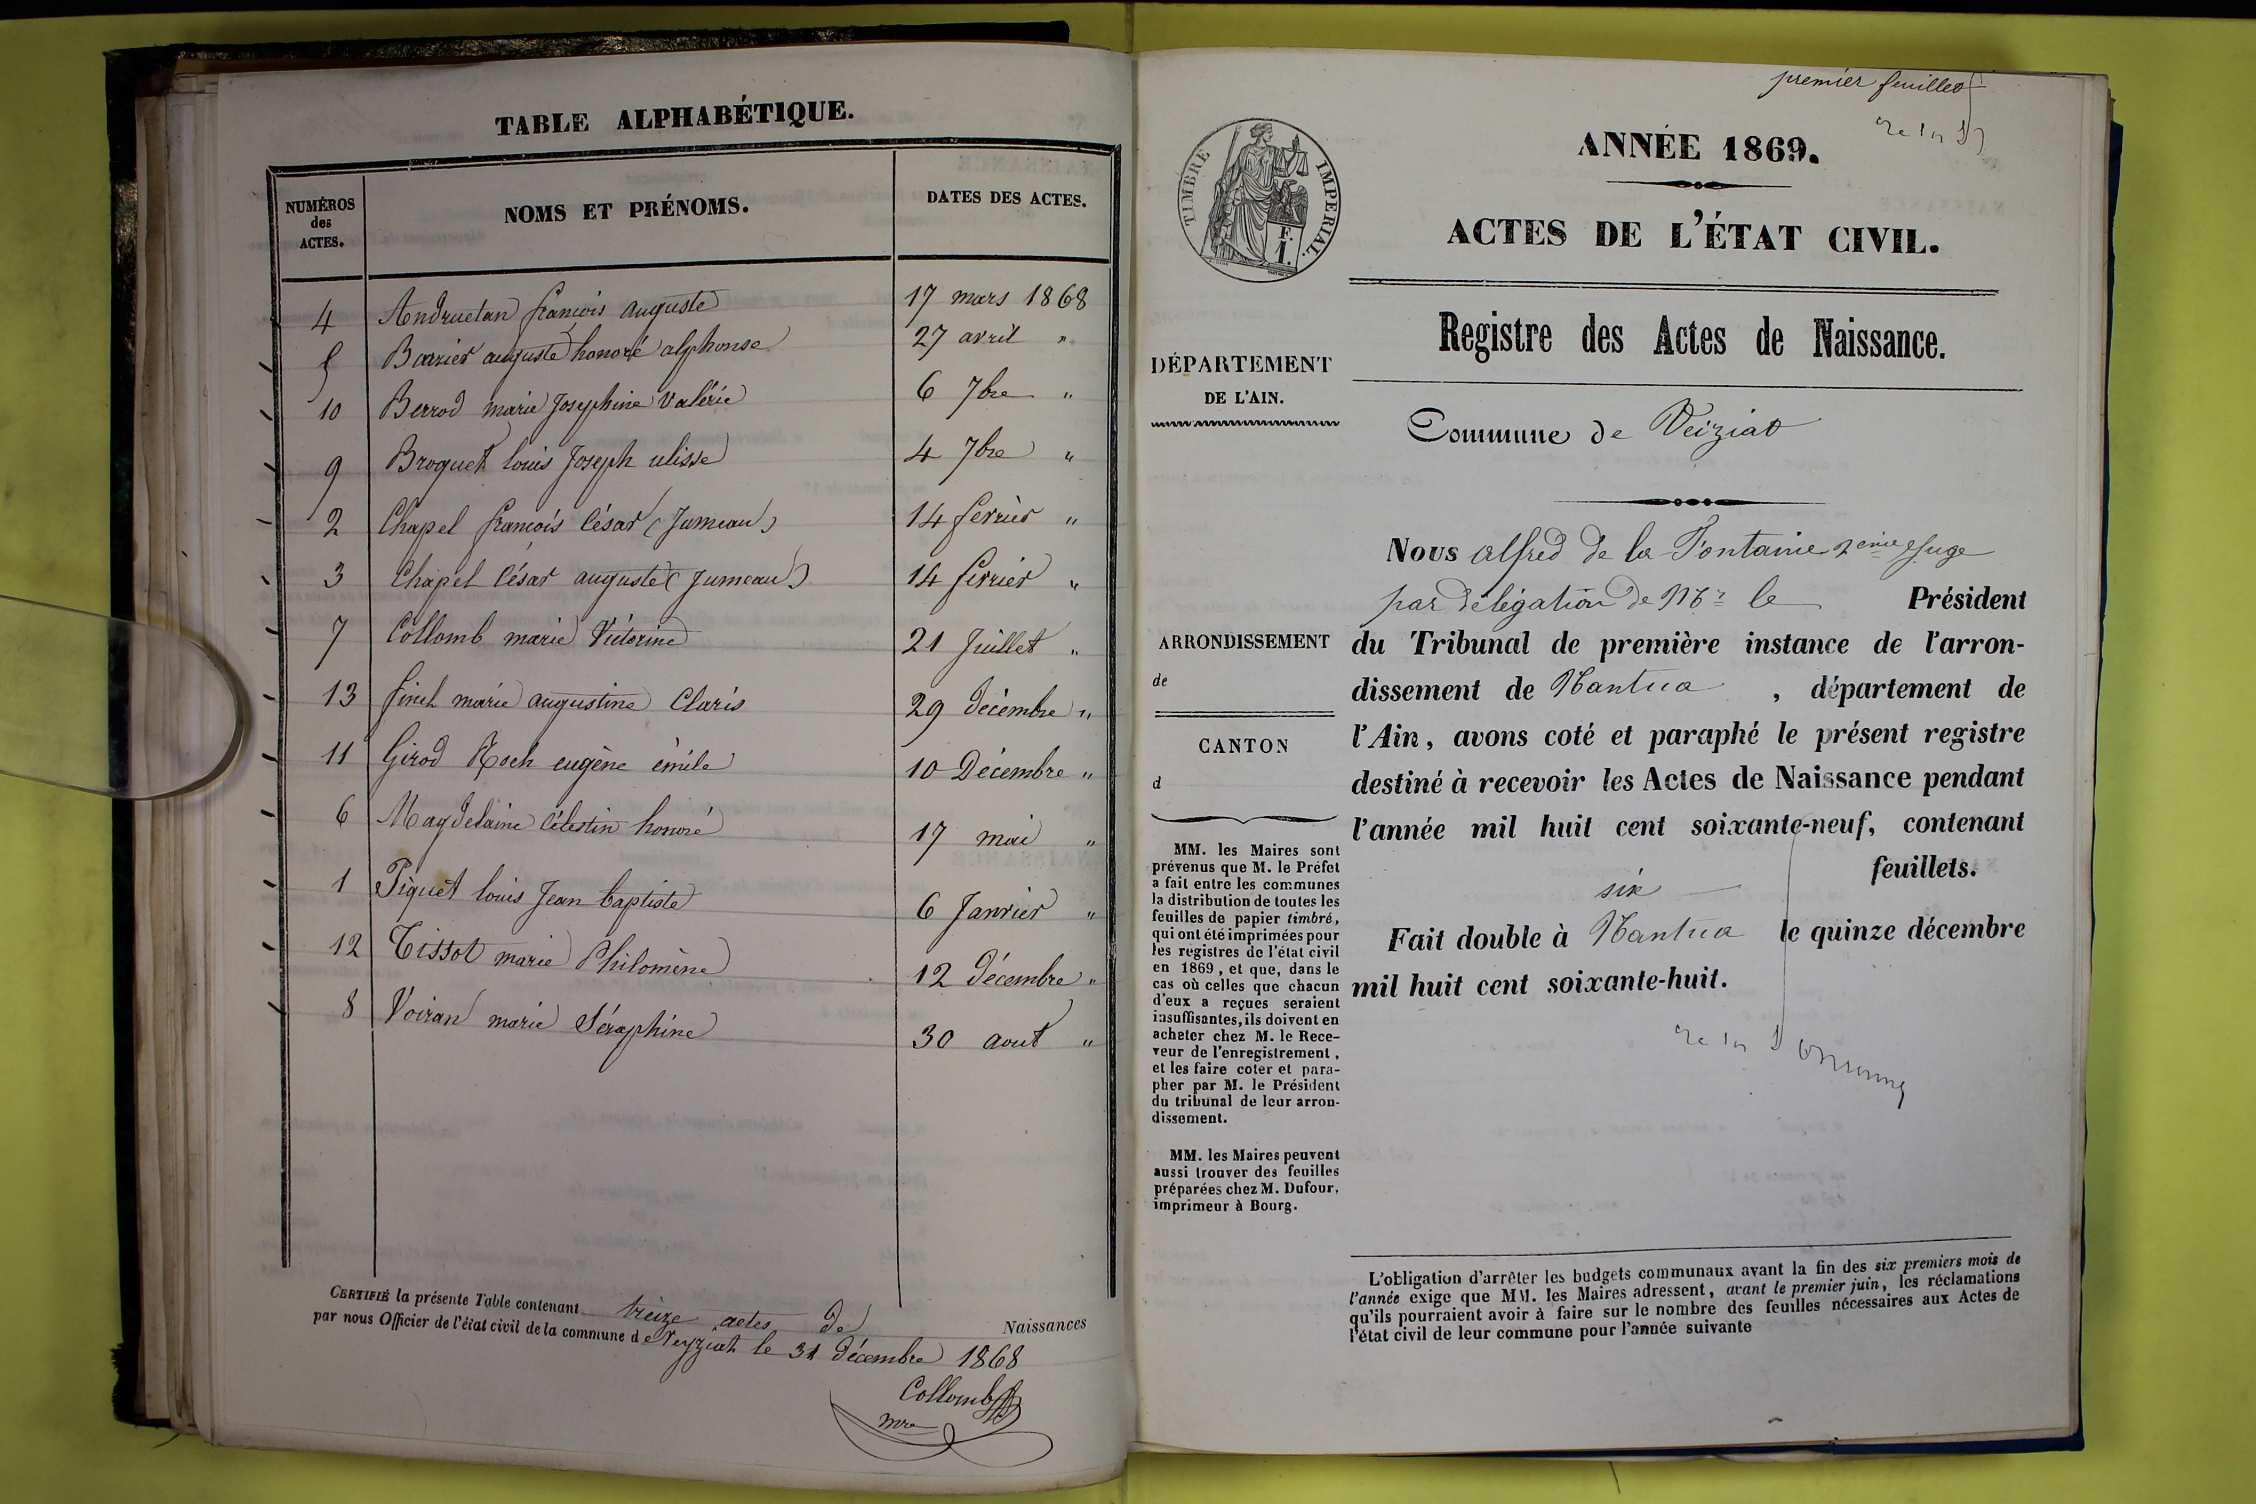 TABLE ALPHABÉTIQUE.
NUMÉROS des ACTES. NOMS ET PRÉNOMS. DATES DES ACTES.
4 Andruetan francois auguste 17 mars 1868
5 Barrier auguste honoré alphonse 27 avril "
10 Berrod marie Josephine Valérie 6 7bre "
9 Broquet louis Joseph ulisse 4 7bre "
2 Chapel francois César (Jumeau) 14 fevrier "
3 Chapel César auguste (Jumeau) 14 fevrier "
7 Collomb marie Victorine 21 Juillet "
13 finet marie augustine Claris 29 décembre "
11 Girod Roch eugène émile 10 Décembre "
6 Magdelaine Célestin honoré 17 mai "
1 Piquet louis Jean baptiste 6 Janvier "
12 Tissot marie Philomène 12 décembre "
8 Voiran marie Séraphine 30 aout "
CERTIFIÉ la présente Table contenant treize actes de Naissances
par nous Officier de l'état civil de la commune de Veyziat le 31 décembre 1868
Collomb
mre
premier feuillet
TIMBRE IMPERIAL.
F.
1.
ANNÉE 1869.
ACTES DE L'ÉTAT CIVIL.
Registre des Actes de Naissance.
DÉPARTEMENT
DE L'AIN.
Commune de Veiziat
Nous alfred de la Fontaine 2eme Juge
par délégation de Mr le Président
ARRONDISSEMENT
de
CANTON
d
du Tribunal de première instance de l'arron-
dissement de Nantua, département de
l'Ain, avons coté et paraphé le présent registre
destiné à recevoir les Actes de Naissance pendant
l'année mil huit cent soixante-neuf, contenant
six feuillets.
Fait double à Nantua le quinze décembre
mil huit cent soixante-huit.
MM. les Maires sont
prévenus que M. le Préfet
a fait entre les communes
la distribution de toutes les
feuilles de papier timbré,
qui ont été imprimées pour
les registres de l'état civil
en 1869, et que, dans le
cas où celles que chacun
d'eux a reçues seraient
insuffisantes, ils doivent en
acheter chez M. le Rece-
veur de l'enregistrement,
et les faire coter et para-
pher par M. le Président
du tribunal de leur arron-
dissement.
MM. les Maires peuvent
aussi trouver des feuilles
préparées chez M. Dufour,
imprimeur à Bourg.
L'obligation d'arrêter les budgets communaux avant la fin des six premiers mois de
l'année exige que MM. les Maires adressent, avant le premier juin, les réclamations
qu'ils pourraient avoir à faire sur le nombre des feuilles nécessaires aux Actes de
l'état civil de leur commune pour l'année suivante